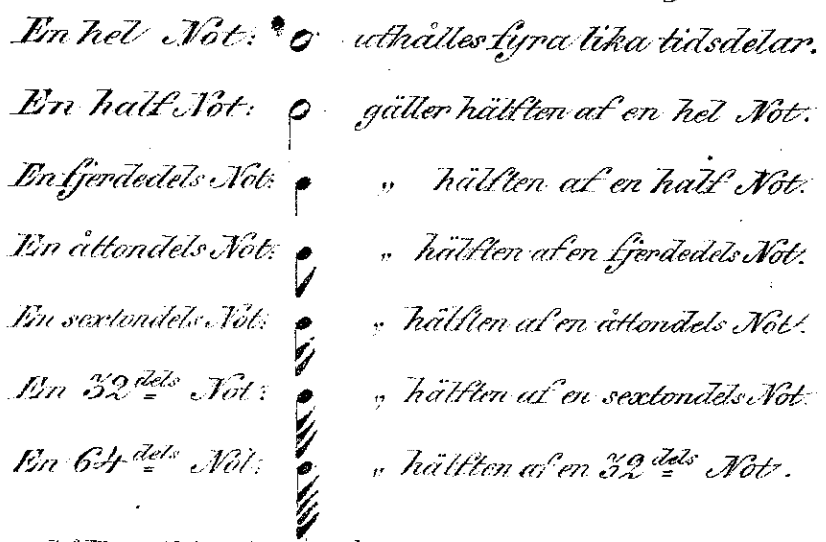 En hel Not: uthålles fyra lika tidsdelar.
En half Not: gäller hälften af en hel Not.
En fjerdedels Not: „ hälften af en half Not.
En åttondels Not: „ hälften af en fjerdedels Not.
En sextondels Not: „ hälften af en åttondels Not.
En 32 dels Not: „ hälften af en sextondels Not.
En 64 dels Not: „ hälften af en 32 dels Not.